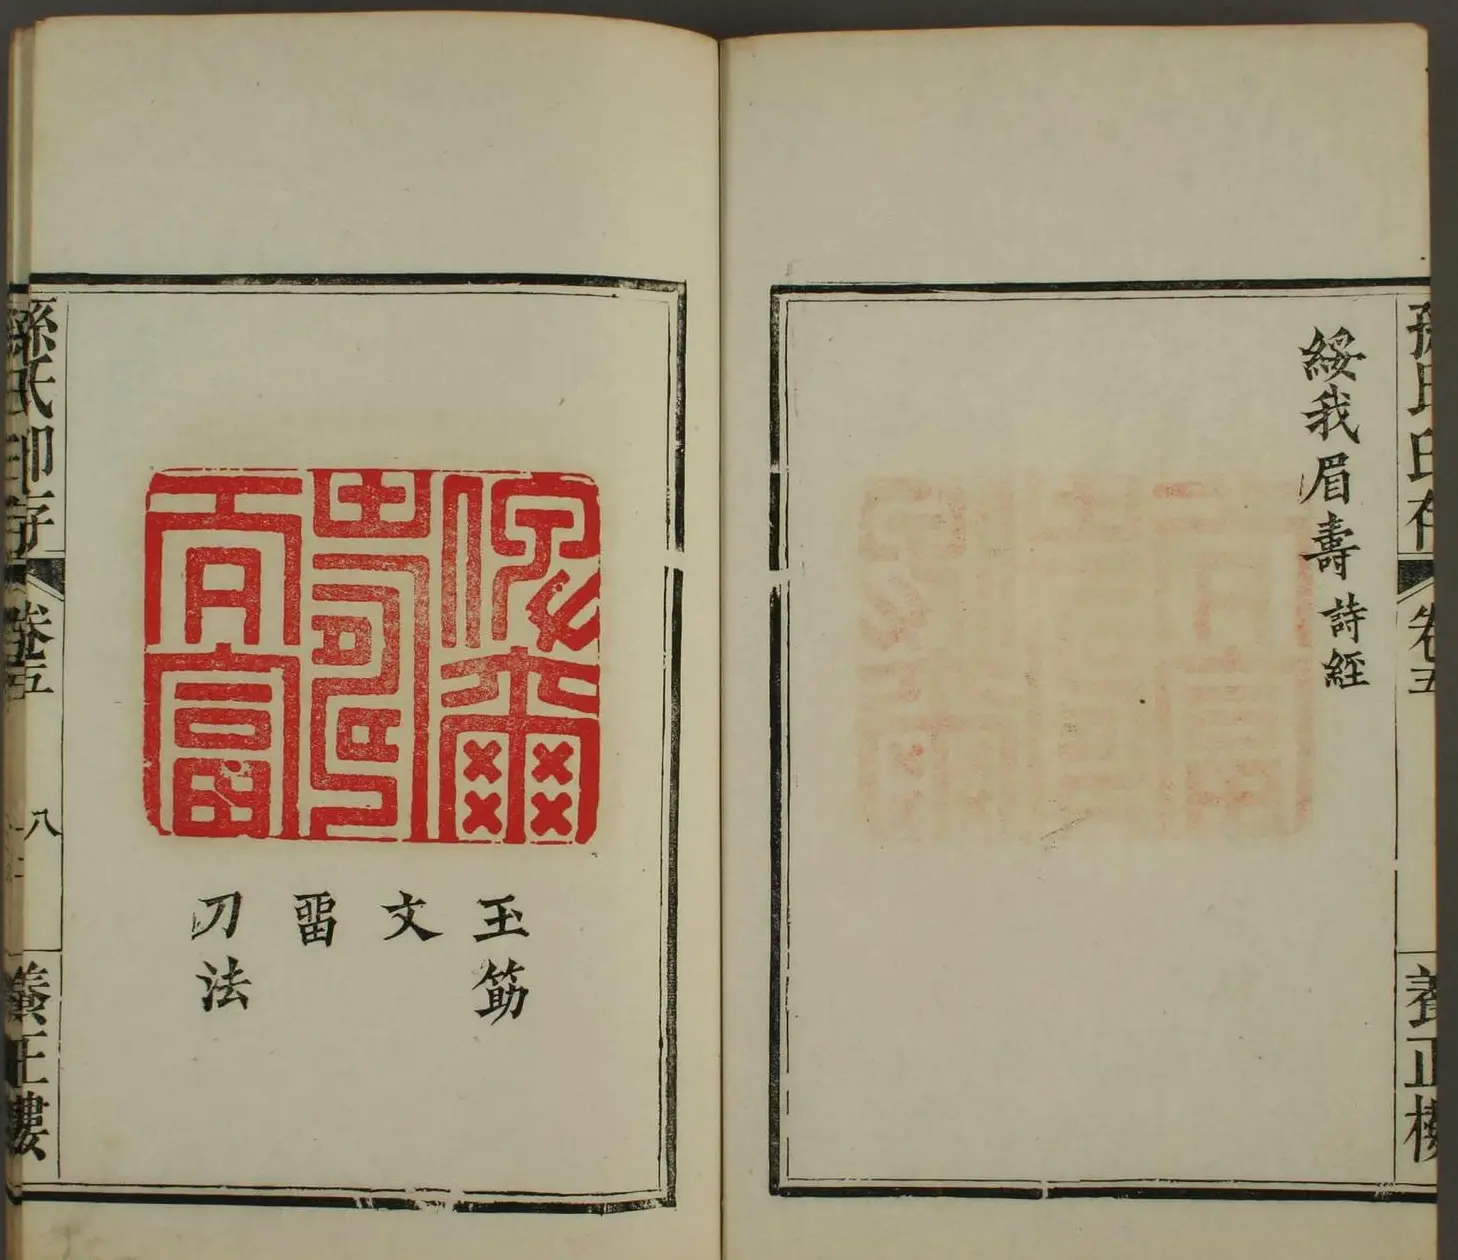 孫氏印存
卷五
養正樓
綏我眉壽 詩經
俾爾
壽
而富
玉筯
文
畱
刀法
孫氏印存
卷五
八
養正樓